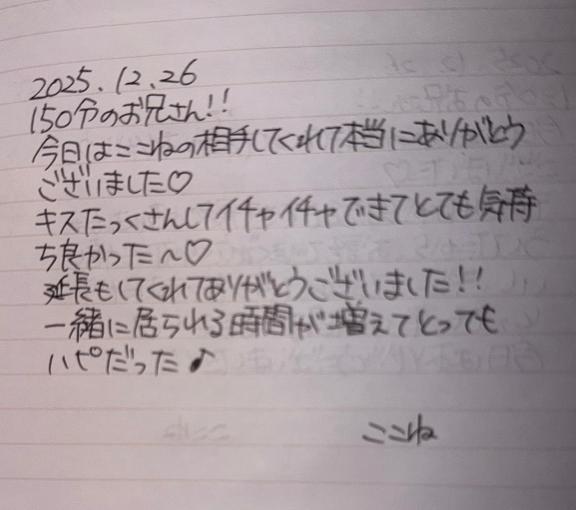 2025.12.26
150分のお兄さん!!
今日はここねの相手してくれて本当にありがとう
ございました♡
キスたっくさんしてイチャイチャできてとても気持
ち良かった〜♡
延長もしてくれてありがとうございました!!
一緒に居られる時間が増えてとっても
ハピだった♪
ここね